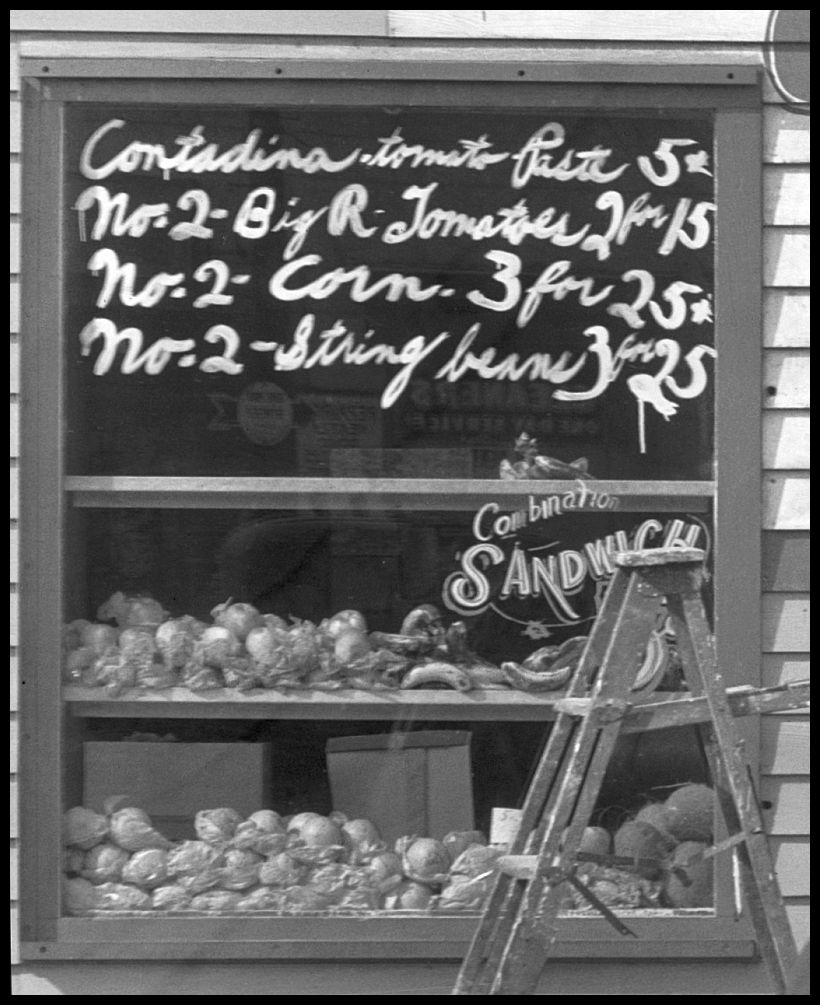 Contadina - tomato Paste 5¢
No. 2 - Big R - Tomatoes 2 for 15
No. 2 - Corn - 3 for 25¢
No. 2 - String beans 3 for 25
Combination
SANDWICH